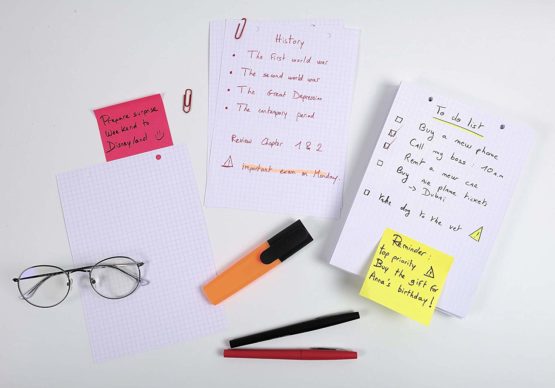 Prepare surprise
weekend to
Disneyland
History
The First world war
The second world war
The Great Depression
The contempory period
Review Chapter 1 & 2
important exam on Monday.
To do list
Buy a new phone
Call my boss : 10 am
Rent a new car
Buy me plane tickets
→ Dubai
take dog to the vet
Reminder :
top priority
Buy the gift for
Anna's birthday !